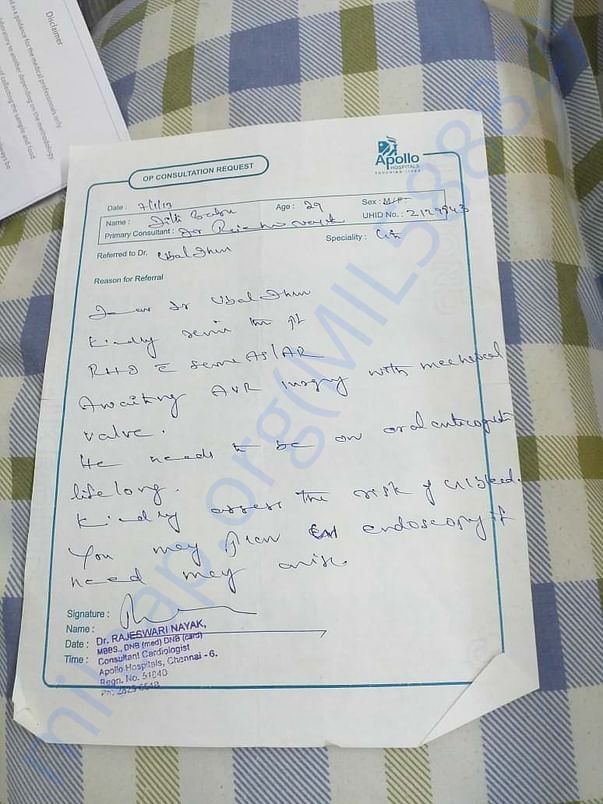 Disclaimer
OP CONSULTATION REQUEST
Apollo
HOSPITALS
TOUCHING LIVES
Date :
Name : Babu Age : 29 Sex :
Primary Consultant : Dr UHID No. :
Referred to Dr. Ubal Dhus Speciality :
Reason for Referral
Dear Dr Ubal Dhus
Kindly review this pt
RHD c severe AS/AR
Awaiting AVR surgery with mechanical
valve.
He needs to be on oral anticoagulant
lifelong.
Kindly assess the risk of GI bleed.
You may plan endoscopy if
need may arise.
Signature :
Name :
Date :
Time :
Dr. RAJESWARI NAYAK,
MBBS., DNB (med) DNB (card)
Consultant Cardiologist
Apollo Hospitals, Chennai - 6.
Regn. No. 51840
milaap.org(MILS